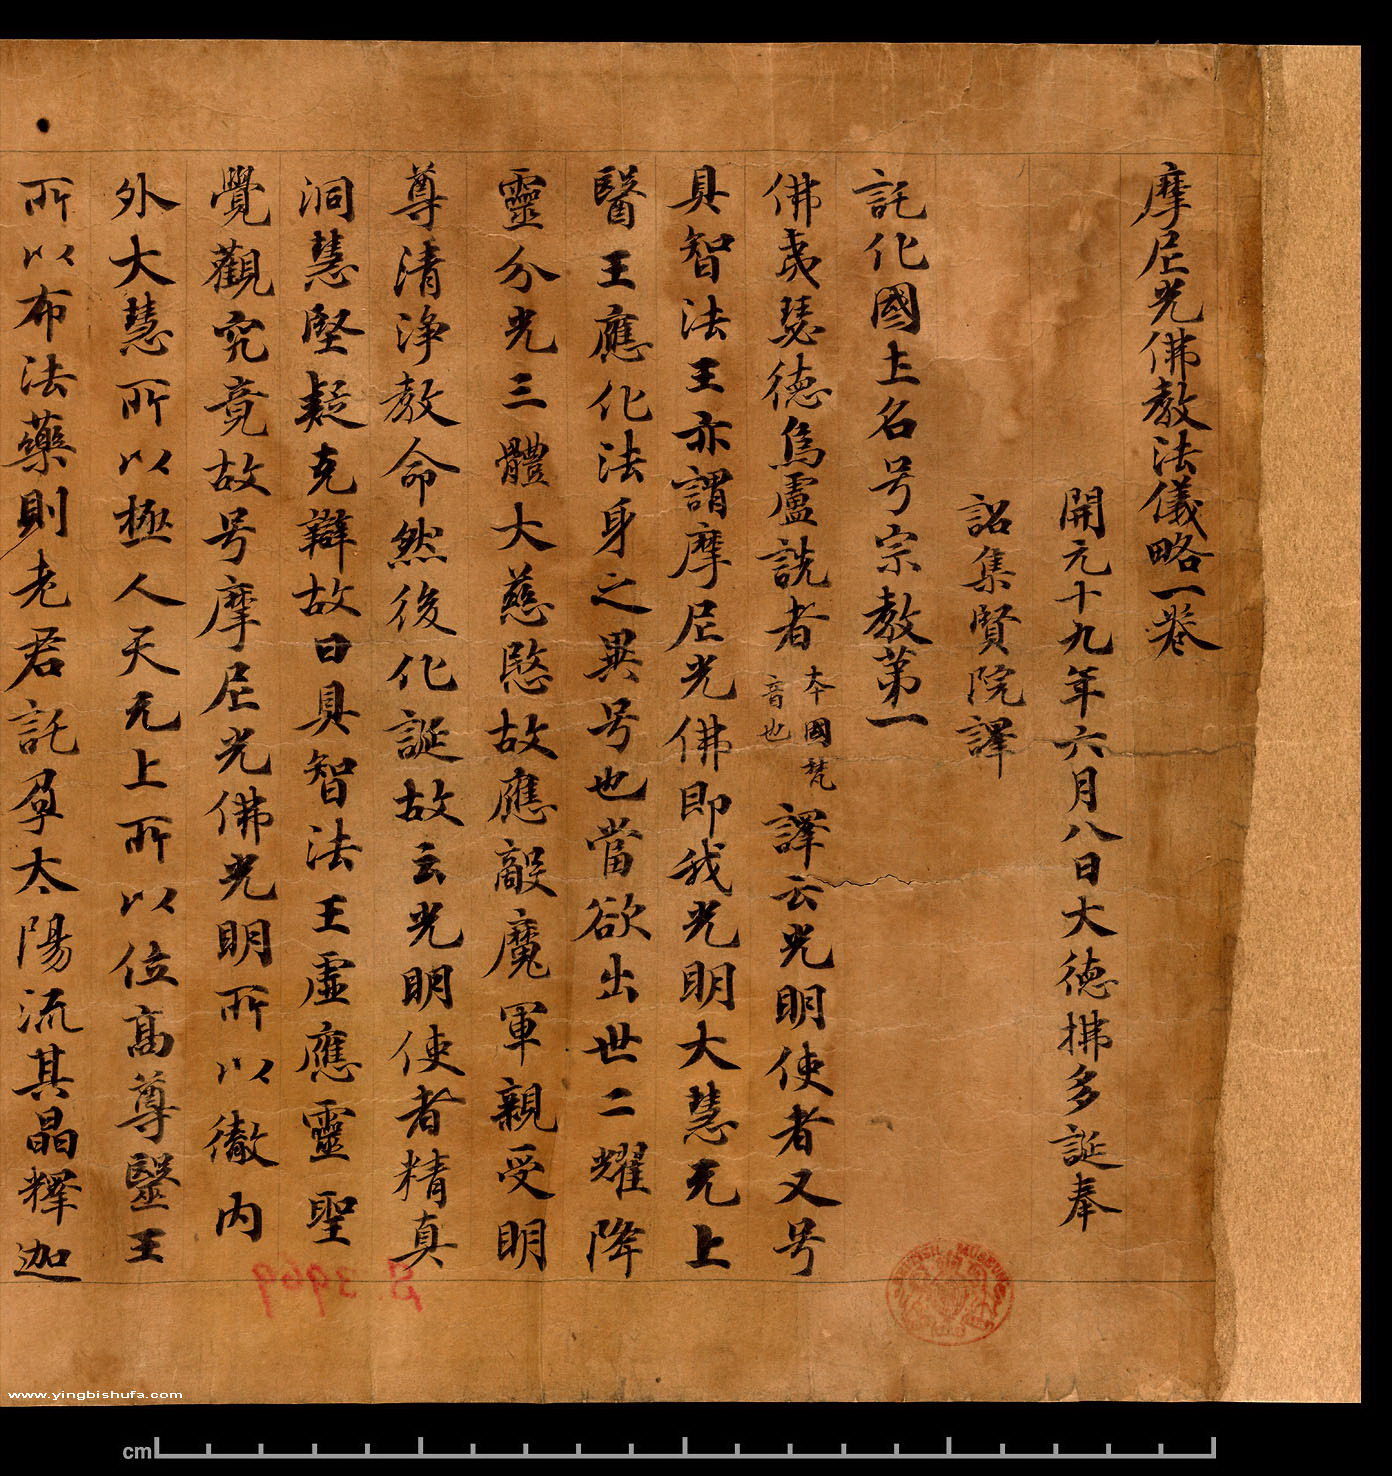 摩尼光佛教法儀略一卷
開元十九年六月八日大德拂多誕奉
詔集賢院譯
託化國土名号宗教第一
佛夷瑟德烏盧詵者本國梵音也譯云光明使者又号
具智法王亦謂摩尼光佛即我光明大慧无上
醫王應化法身之異号也當欲出世二耀降
靈分光三體大慈愍故應敵魔軍親受明
尊清淨教命然後化誕故云光明使者精真
洞慧堅疑克辯故曰具智法王虛應靈聖
覺觀究竟故号摩尼光佛光明所以徹内
外大慧所以極人天无上所以位高尊毉王
所以布法藥則老君託孕太陽流其晶釋迦
BRITISH MUSEUM
S. 3969
www.yingbishufa.com
cm